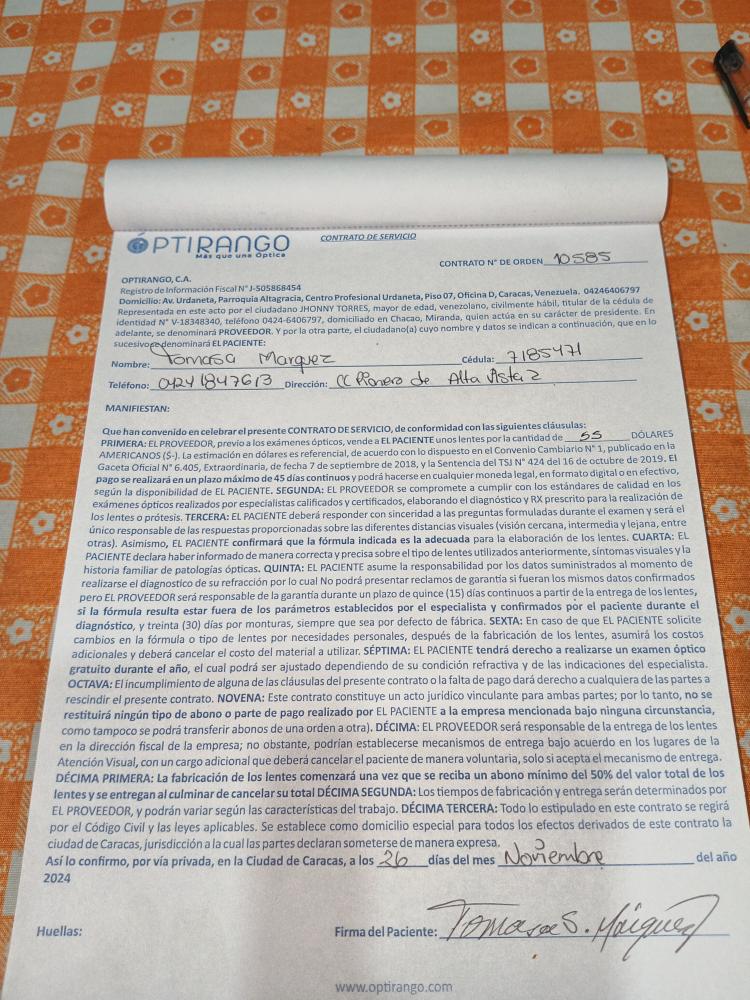 ÓPTIRANGO
Más que una Óptica
CONTRATO DE SERVICIO
CONTRATO N° DE ORDEN 10585
OPTIRANGO, C.A.
Registro de Información Fiscal N° J-505868454
Domicilio: Av. Urdaneta, Parroquia Altagracia, Centro Profesional Urdaneta, Piso 07, Oficina D, Caracas, Venezuela. 04246406797
Representada en este acto por el ciudadano JHONNY TORRES, mayor de edad, venezolano, civilmente hábil, titular de la cédula de
identidad N° V-18348340, teléfono 0424-6406797, domiciliado en Chacao, Miranda, quien actúa en su carácter de presidente. En
adelante, se denominará PROVEEDOR. Y por la otra parte, el ciudadano(a) cuyo nombre y datos se indican a continuación, que en lo
sucesivo se denominará EL PACIENTE:
Nombre: Tomasa Marquez Cédula: 7185471
Teléfono: 04241847613 Dirección: CC Pionero de Alta Vista 2
MANIFIESTAN:
Que han convenido en celebrar el presente CONTRATO DE SERVICIO, de conformidad con las siguientes cláusulas:
PRIMERA: EL PROVEEDOR, previo a los exámenes ópticos, vende a EL PACIENTE unos lentes por la cantidad de 55 DÓLARES
AMERICANOS ($-). La estimación en dólares es referencial, de acuerdo con lo dispuesto en el Convenio Cambiario N° 1, publicado en la
Gaceta Oficial N° 6.405, Extraordinaria, de fecha 7 de septiembre de 2018, y la Sentencia del TSJ N° 424 del 16 de octubre de 2019. El
pago se realizará en un plazo máximo de 45 días continuos y podrá hacerse en cualquier moneda legal, en formato digital o en efectivo,
según la disponibilidad de EL PACIENTE. SEGUNDA: EL PROVEEDOR se compromete a cumplir con los estándares de calidad en los
exámenes ópticos realizados por especialistas calificados y certificados, elaborando el diagnóstico y RX prescrito para la realización de
los lentes o prótesis. TERCERA: EL PACIENTE deberá responder con sinceridad a las preguntas formuladas durante el examen y será el
único responsable de las respuestas proporcionadas sobre las diferentes distancias visuales (visión cercana, intermedia y lejana, entre
otras). Asimismo, EL PACIENTE confirmará que la fórmula indicada es la adecuada para la elaboración de los lentes. CUARTA: EL
PACIENTE declara haber informado de manera correcta y precisa sobre el tipo de lentes utilizados anteriormente, síntomas visuales y la
historia familiar de patologías ópticas. QUINTA: EL PACIENTE asume la responsabilidad por los datos suministrados al momento de
realizarse el diagnostico de su refracción por lo cual No podrá presentar reclamos de garantía si fueran los mismos datos confirmados
pero EL PROVEEDOR será responsable de la garantía durante un plazo de quince (15) días continuos a partir de la entrega de los lentes,
si la fórmula resulta estar fuera de los parámetros establecidos por el especialista y confirmados por el paciente durante el
diagnóstico, y treinta (30) días por monturas, siempre que sea por defecto de fábrica. SEXTA: En caso de que EL PACIENTE solicite
cambios en la fórmula o tipo de lentes por necesidades personales, después de la fabricación de los lentes, asumirá los costos
adicionales y deberá cancelar el costo del material a utilizar. SÉPTIMA: EL PACIENTE tendrá derecho a realizarse un examen óptico
gratuito durante el año, el cual podrá ser ajustado dependiendo de su condición refractiva y de las indicaciones del especialista.
OCTAVA: El incumplimiento de alguna de las cláusulas del presente contrato o la falta de pago dará derecho a cualquiera de las partes a
rescindir el presente contrato. NOVENA: Este contrato constituye un acto jurídico vinculante para ambas partes; por lo tanto, no se
restituirá ningún tipo de abono o parte de pago realizado por EL PACIENTE a la empresa mencionada bajo ninguna circunstancia,
como tampoco se podrá transferir abonos de una orden a otra). DÉCIMA: EL PROVEEDOR será responsable de la entrega de los lentes
en la dirección fiscal de la empresa; no obstante, podrían establecerse mecanismos de entrega bajo acuerdo en los lugares de la
Atención Visual, con un cargo adicional que deberá cancelar el paciente de manera voluntaria, solo si acepta el mecanismo de entrega.
DÉCIMA PRIMERA: La fabricación de los lentes comenzará una vez que se reciba un abono mínimo del 50% del valor total de los
lentes y se entregan al culminar de cancelar su total DÉCIMA SEGUNDA: Los tiempos de fabricación y entrega serán determinados por
EL PROVEEDOR, y podrán variar según las características del trabajo. DÉCIMA TERCERA: Todo lo estipulado en este contrato se regirá
por el Código Civil y las leyes aplicables. Se establece como domicilio especial para todos los efectos derivados de este contrato la
ciudad de Caracas, jurisdicción a la cual las partes declaran someterse de manera expresa.
Así lo confirmo, por vía privada, en la Ciudad de Caracas, a los 26 días del mes Noviembre del año
2024
Huellas:
Firma del Paciente: Tomasa S. Márquez
www.optirango.com